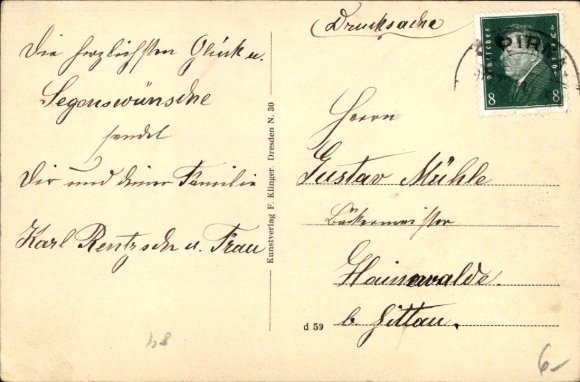 Drucksache
Die herzlichsten Glück u.
Segenswünsche
sendet
Dir und deiner Familie
Karl Rentzsch u. Frau
Kunstverlag F. Klinger, Dresden N. 30
d 59
Deutsches Reich
PIRNA
8 8
Herrn
Gustav Mühle
Bäckermeister
Hainewalde
b. Zittau.
6-